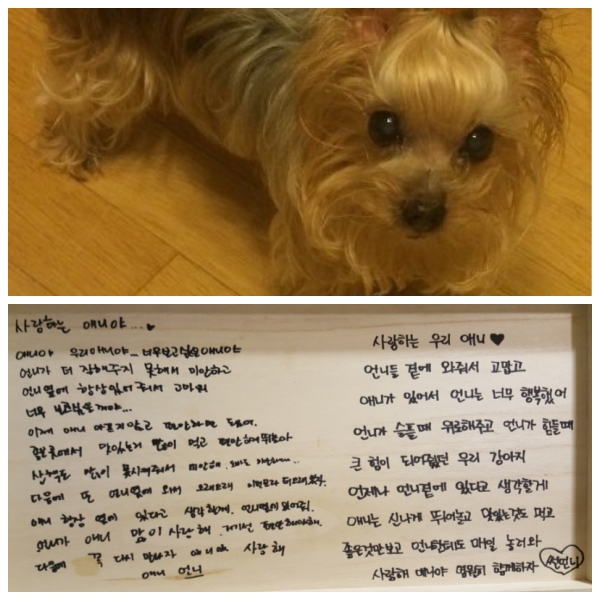 사랑하는 애니야...♥
애니야 우리애니야... 너무보고싶은애니야
언니가 더 잘해주지 못해서 미안하고
언니옆에 항상있어줘서 고마워
너무 보고싶은거야...
이제 애니 아프지않고 편안하면 돼.
맛있는거 많이 먹고 편안하게뛰놀아
산책도 많이 못시켜줘서 미안해..
다음에 또 언니옆에 와서 오래오래
애니 항상 옆에 있다고 생각할게. 언니옆에있어줘.
언니가 애니 많이 사랑해. 거기선 편안해야해.
다음에 꼭 다시 만나자 애니야 사랑해
애니 언니
사랑하는 우리 애니♥
언니들 곁에 와줘서 고맙고
애니가 있어서 언니는 너무 행복했어
언니가 슬플때 위로해주고 언니가 힘들때
큰 힘이 되어줬던 우리 강아지
언제나 언니곁에 있다고 생각할게
애니는 신나게 뛰어놀고 맛있는것도 먹고
좋은것만보고 언니한테도 매일 놀러와
사랑해 애니야 영원히 함께하자 썬언니